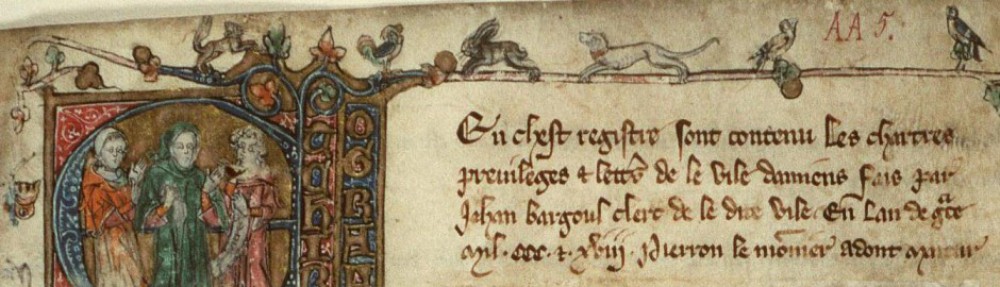 AA 5.
En chest registre sont contenu les chartres
preuileges & lettres de le vile damiens fais par
Jehan bargoul clerc de le dite vile. En lan de grce
Mil. CCC. & xviij. Pierron le monnier adont